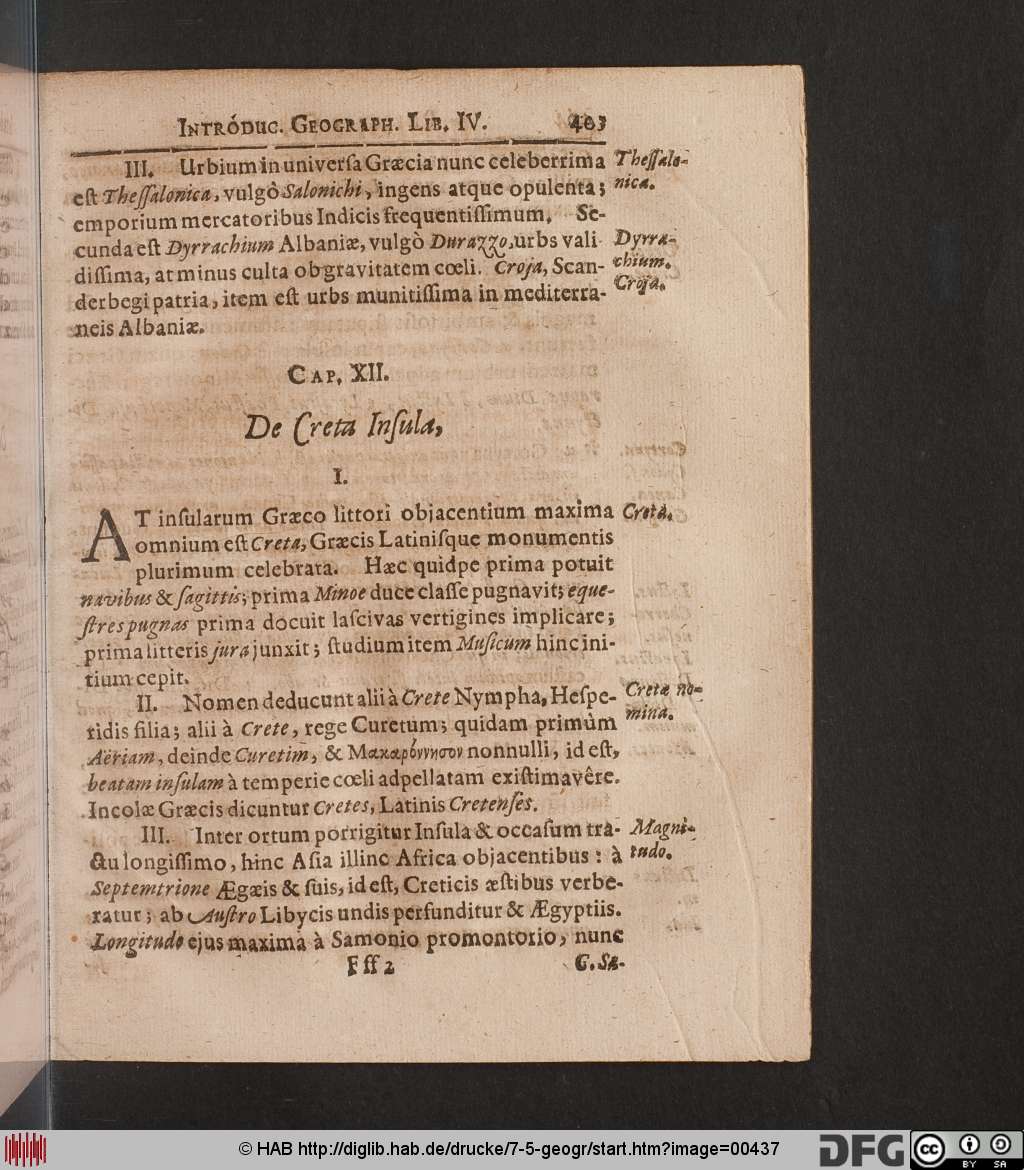 INTRÓDUC. GEOGRAPH. LIB. IV. 403
III. Urbium in universa Græcia nunc celeberrima
est Thessalonica, vulgò Salonichi, ingens atque opulenta;
emporium mercatoribus Indicis frequentissimum. Se-
cunda est Dyrrachium Albaniæ, vulgò Durazzo. urbs vali-
dissima, at minus culta ob gravitatem cœli. Croja, Scan-
derbegi patria, item est urbs munitissima in mediterra-
neis Albaniæ.
Thessalo-
nica.
Dyrra-
chium.
Croja.
CAP. XII.
De Creta Insula,
I.
AT insularum Græco littori objacentium maxima
omnium est Creta, Græcis Latinisque monumentis
plurimum celebrata. Hæc quidpe prima potuit
navibus & sagittis; prima Minoe duce classe pugnavit; eque-
stres pugnas prima docuit lascivas vertigines implicare;
prima litteris jura junxit; studium item Musicum hinc ini-
tium cepit.
Creta.
II. Nomen deducunt alii à Crete Nympha, Hespe-
ridis filia; alii à Crete, rege Curetum; quidam primùm
Aëriam, deinde Curetim, & Μακαρόννησον nonnulli, id est,
beatam insulam à temperie cœli adpellatam existimavêre.
Incolæ Græcis dicuntur Cretes, Latinis Cretenses.
Cretæ no-
mina.
III. Inter ortum porrigitur Insula & occasum tra-
ctu longissimo, hinc Asia illinc Africa objacentibus: à
Septemtrione Ægæis & suis, id est, Creticis æstibus verbe-
ratur; ab Austro Libycis undis perfunditur & Ægyptiis.
Longitudo ejus maxima à Samonio promontorio, nunc
Magni-
tudo.
Fff 2 C. Sa-
© HAB http://diglib.hab.de/drucke/7-5-geogr/start.htm?image=00437
DFG
cc BY SA